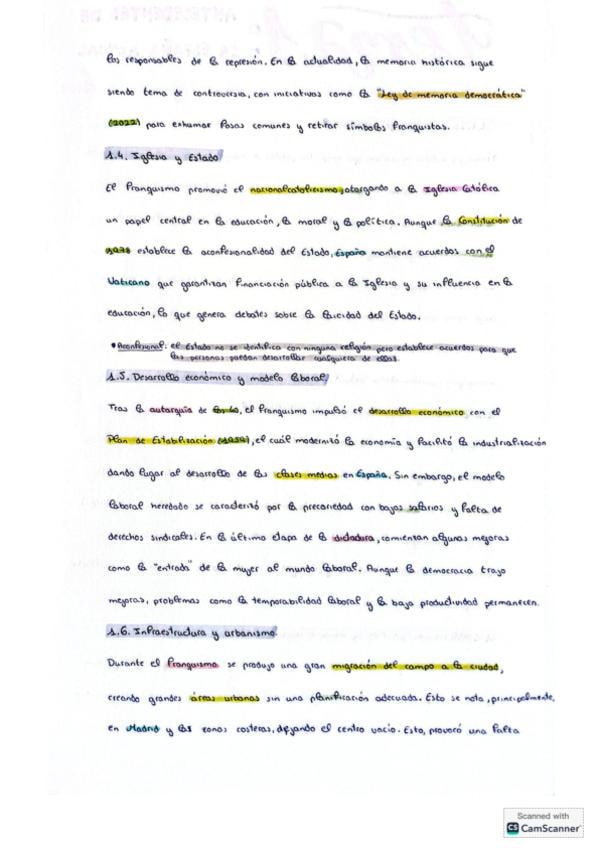 los responsables de la represión. En la actualidad, la memoria histórica sigue
siendo tema de controversia, con iniciativas como la "Ley de memoria democrática"
(2022) para exhumar fosas comunes y retirar símbolos franquistas.
1.4. Iglesia y Estado
El franquismo promovió el nacionalcatolicismo, otorgando a la Iglesia Católica
un papel central en la educación, la moral y la política. Aunque la Constitución de
1978 establece la aconfesionalidad del Estado, España mantiene acuerdos con el
Vaticano que garantizan financiación pública a la Iglesia y su influencia en la
educación, lo que genera debates sobre la laicidad del Estado.
• Aconfesional: el Estado no se identifica con ninguna religión pero establece acuerdos para que
las personas puedan desarrollar cualquiera de ellas.
1.5. Desarrollo económico y modelo laboral
Tras la autarquía de los 40, el franquismo impulsó el desarrollo económico con el
Plan de Establización (1959), el cuál modernizó la economía y facilitó la industrialización
dando lugar al desarrollo de las clases medias en España. Sin embargo, el modelo
laboral heredado se caracterizó por la precariedad con bajos salarios y falta de
derechos sindicales. En la última etapa de la dictadura, comienzan algunas mejoras
como la "entrada" de la mujer al mundo laboral. Aunque la democracia trajo
mejoras, problemas como la temporabilidad laboral y la baja productividad permanecen.
1.6. Infraestructura y urbanismo
Durante el franquismo se produjo una gran migración del campo a la ciudad,
creando grandes áreas urbanas sin una planificación adecuada. Esto se nota, principalmente,
en Madrid y las zonas costeras, dejando el centro vacío. Esto, provocó una falta
Scanned with
CS CamScanner